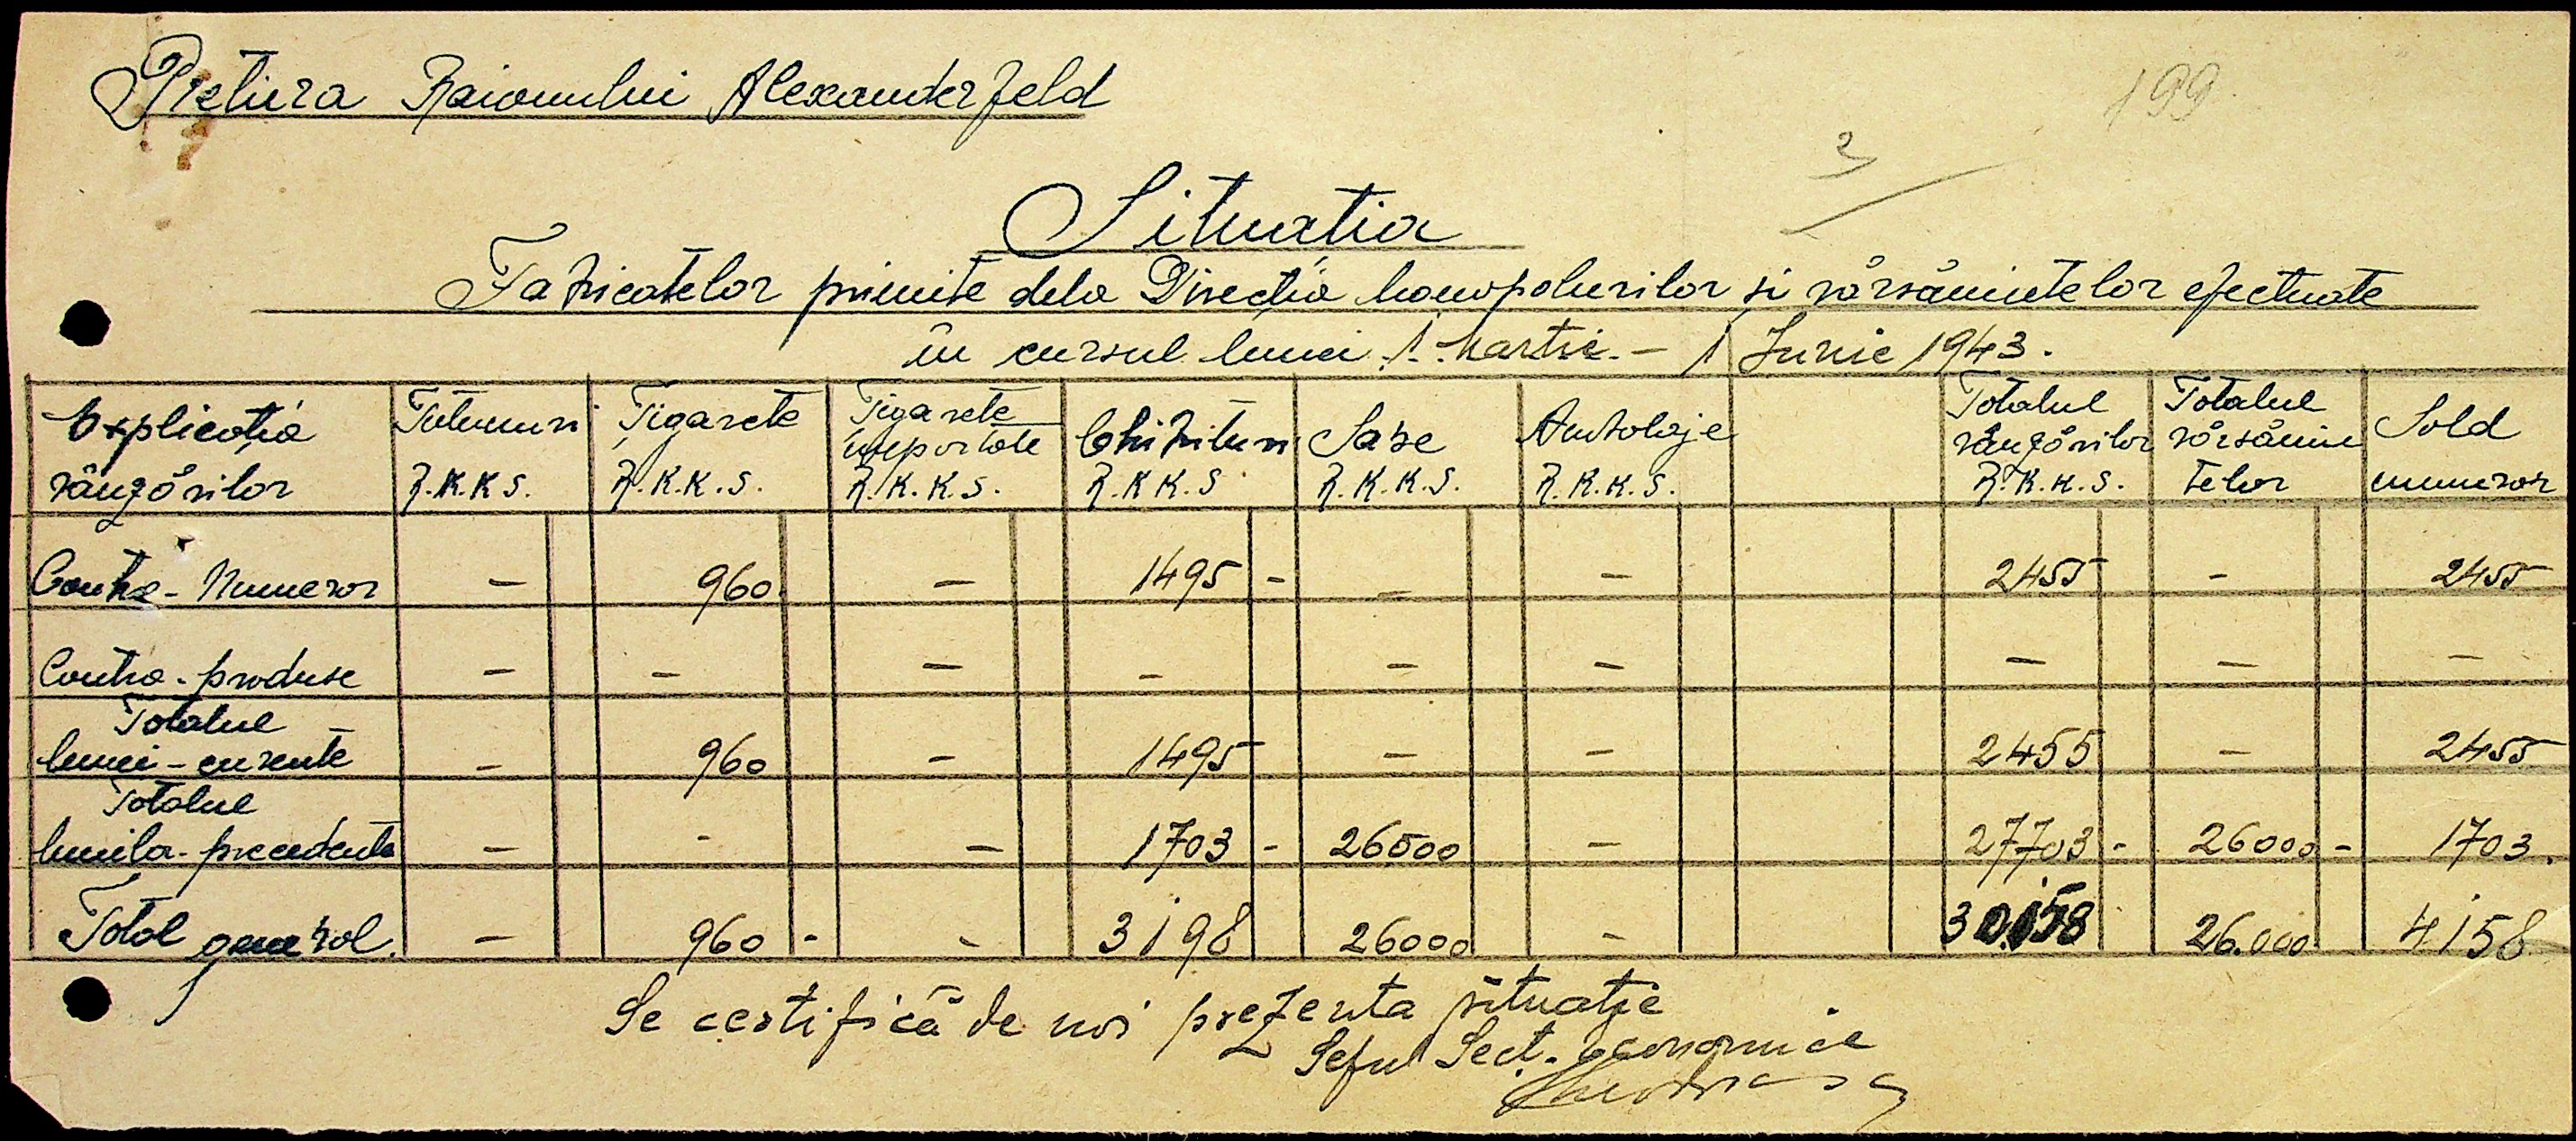 Pretura Raionului Alexanderfeld
199
2
Situația
Fabricatelor primite dela Direcția Monopolurilor și vărsămintelor efectuate
în cursul lunei 1. Martie. - 1 Junie 1943.
Explicația vânzărilor
Tutunuri R.K.K.S.
Țigarete R.K.K.S.
Țigarete importate R.K.K.S.
Chibrituri R.K.K.S
Sare R.K.K.S.
Ambalaje R.K.K.S.
Totalul vânzărilor R.K.K.S.
Totalul vărsămintelor
Sold numerar
Contra - Numerar - 960 - 1495 - - - 2455 - 2455
Contra - produse - - - - - - - - -
Totalul
lunei - curente - 960 - 1495 - - 2455 - 2455
Totalul
lunilor - precedente - - - 1703 - 26000 - 27703 - 26000 - 1703.
Total general. - 960 - - 3198 26000 - 30.158 26.000 4158
Se certifică de noi prezenta situație
Șeful Secț. economice